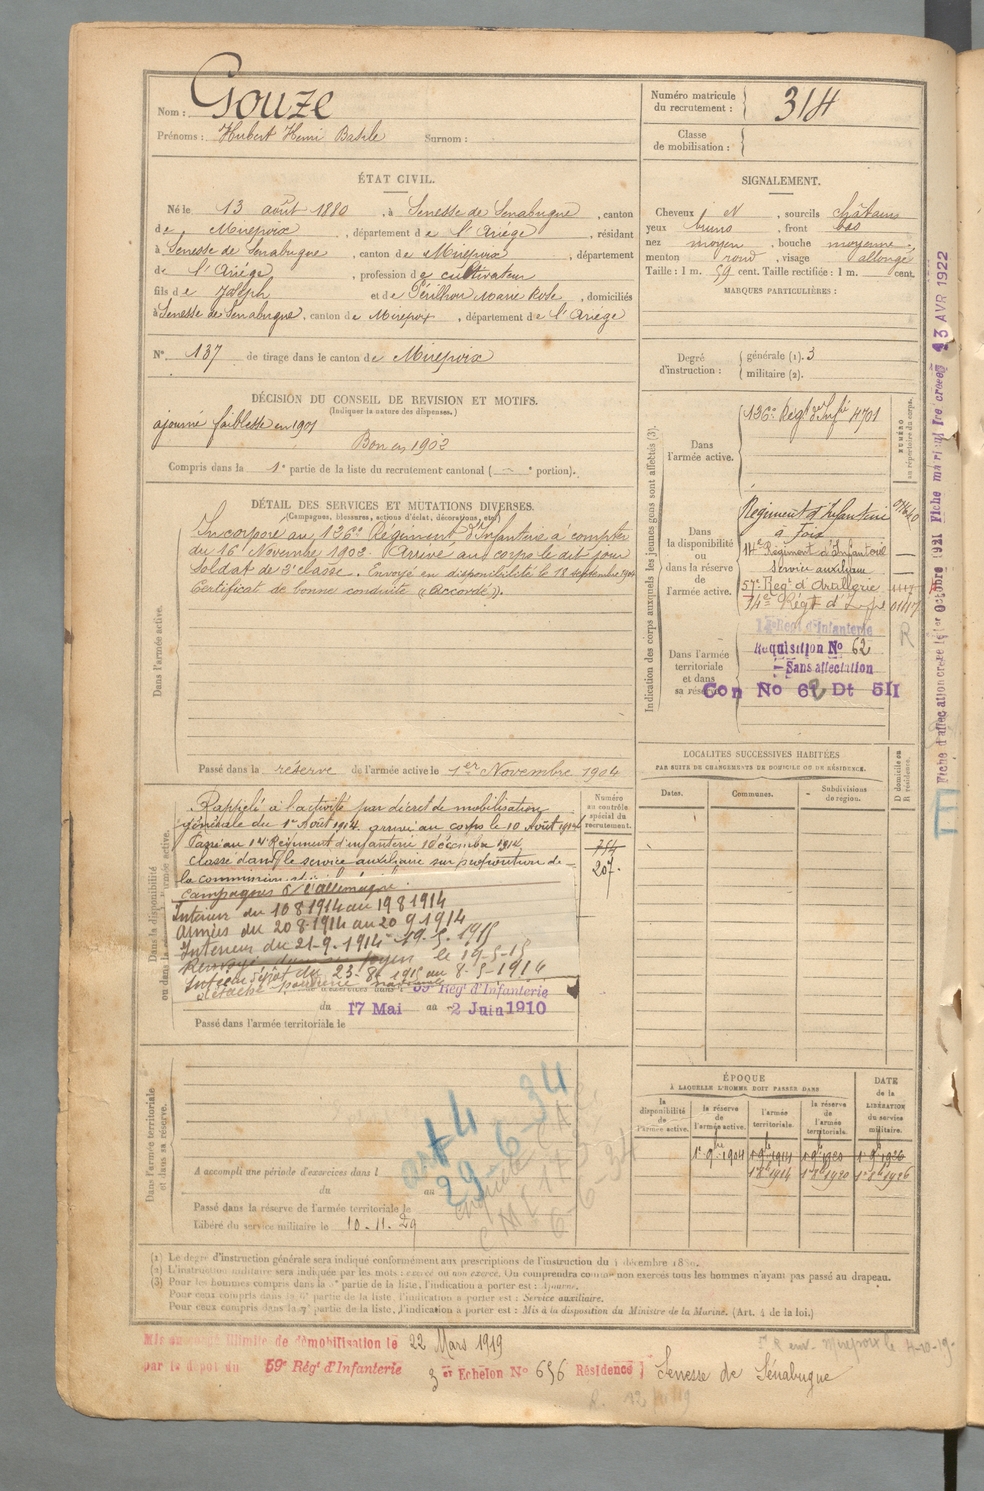 Nom : Gouze
Prénoms : Hubert Henri Basile Surnom :
Numéro matricule du recrutement : 314
Classe de mobilisation :
ÉTAT CIVIL.
Né le 13 août 1880, à Senesse de Senabugue, canton
de Mirepoix, département de l'Ariège, résidant
à Senesse de Senabugue, canton de Mirepoix, département
de l'Ariège, profession de cultivateur
fils de Joseph et de Périlhou Marie Rose, domiciliés
à Senesse de Senabugue, canton de Mirepoix, département de l'Ariège
N° 137 de tirage dans le canton de Mirepoix
SIGNALEMENT.
Cheveux et N, sourcils châtains
yeux bruns, front bas
nez moyen, bouche moyenne
menton rond, visage allongé
Taille : 1 m. 59 cent. Taille rectifiée : 1 m. cent.
MARQUES PARTICULIÈRES :
Degré d'instruction : générale (1). 3
militaire (2).
DÉCISION DU CONSEIL DE REVISION ET MOTIFS.
(Indiquer la nature des dispenses.)
ajourné faiblesse en 1901
Bon en 1902
Compris dans la 1e partie de la liste du recrutement cantonal ( portion).
DÉTAIL DES SERVICES ET MUTATIONS DIVERSES.
(Campagnes, blessures, actions d'éclat, décorations, etc.)
Dans l'armée active.
Incorporé au 136e Régiment d'Infanterie à compter
du 16 Novembre 1902. Arrivé au corps le dit jour
Soldat de 2e classe. Envoyé en disponibilité le 18 septembre 1904
Certificat de bonne conduite "Accordé".
Passé dans la réserve de l'armée active le 1er Novembre 1904
Indication des corps auxquels les jeunes gens sont affectés (3).
NUMÉRO au répertoire du corps.
Dans l'armée active.
136e Régt d'Infie 4701
Dans la disponibilité ou dans la réserve de l'armée active.
Régiment d'Infanterie
à Foix
14e Régiment d'Infanterie
Service auxiliaire
57e Regt d'Artillerie
Dans l'armée territoriale et dans sa réserve
Régt d'Infanterie
Requisition No 62
Sans affectation
Dt 511
R
LOCALITÉS SUCCESSIVES HABITÉES
PAR SUITE DE CHANGEMENTS DE DOMICILE OU DE RÉSIDENCE.
Dates. Communes. Subdivisions de région.
D domicile ou R résidence.
Dans la disponibilité ou dans la réserve de l'armée active.
Rappelé à l'activité par décret de mobilisation
générale du 1er Août 1914. arrivé au corps le 10 Août 1914
Passé au 14e Régiment d'infanterie 10 décembre 1914
classé dans le service auxiliaire sur proposition de
la commission
Campagnes c/ l'allemagne.
Intérieur du 10 8 1914 au 19 8 1914
Armées du 20-8-1914 au 20 9 1914
Intérieur du 21-9-1914 19-5-1915
le 19-5-15
59 Régt d'Infanterie
du 17 Mai au 2 Juin 1910
Passé dans l'armée territoriale le
Numéro au contrôle spécial du recrutement.
207.
Dans l'armée territoriale et dans sa réserve.
art 4
29-6-34
6-6-34
A accompli une période d'exercices dans l
du au
Passé dans la réserve de l'armée territoriale le
Libéré du service militaire le 10.11.29
ÉPOQUE
À LAQUELLE L'HOMME DOIT PASSER DANS
la disponibilité de l'armée active. la réserve de l'armée active. l'armée territoriale. la réserve de l'armée territoriale.
DATE de la LIBÉRATION du service militaire.
1er 9bre 1904 1er 9bre 1914 1er 9bre 1920 1er 9bre 1926
(1) Le degré d'instruction générale sera indiqué conformément aux prescriptions de l'instruction du décembre
(2) L'instruction militaire sera indiquée par les mots : exercé ou non exercé. On comprendra comme non exercés tous les hommes n'ayant pas passé au drapeau.
(3) Pour les hommes compris dans la partie de la liste, l'indication à porter est : Ajourné.
Pour ceux compris dans la partie de la liste, l'indication à porter est : Service auxiliaire.
Pour ceux compris dans la partie de la liste, l'indication à porter est : Mis à la disposition du Ministre de la Marine. (Art. 4 de la loi.)
Mis en congé illimité de démobilisation le 22 Mars 1919
par le dépôt du 59e Régt d'Infanterie
3 er Echelon No 656 Résidence Senesse de Sénabugue
Fiche d'affectation créée le 1er Octobre 1921 Fiche matricule créée 13 AVR 1922
E